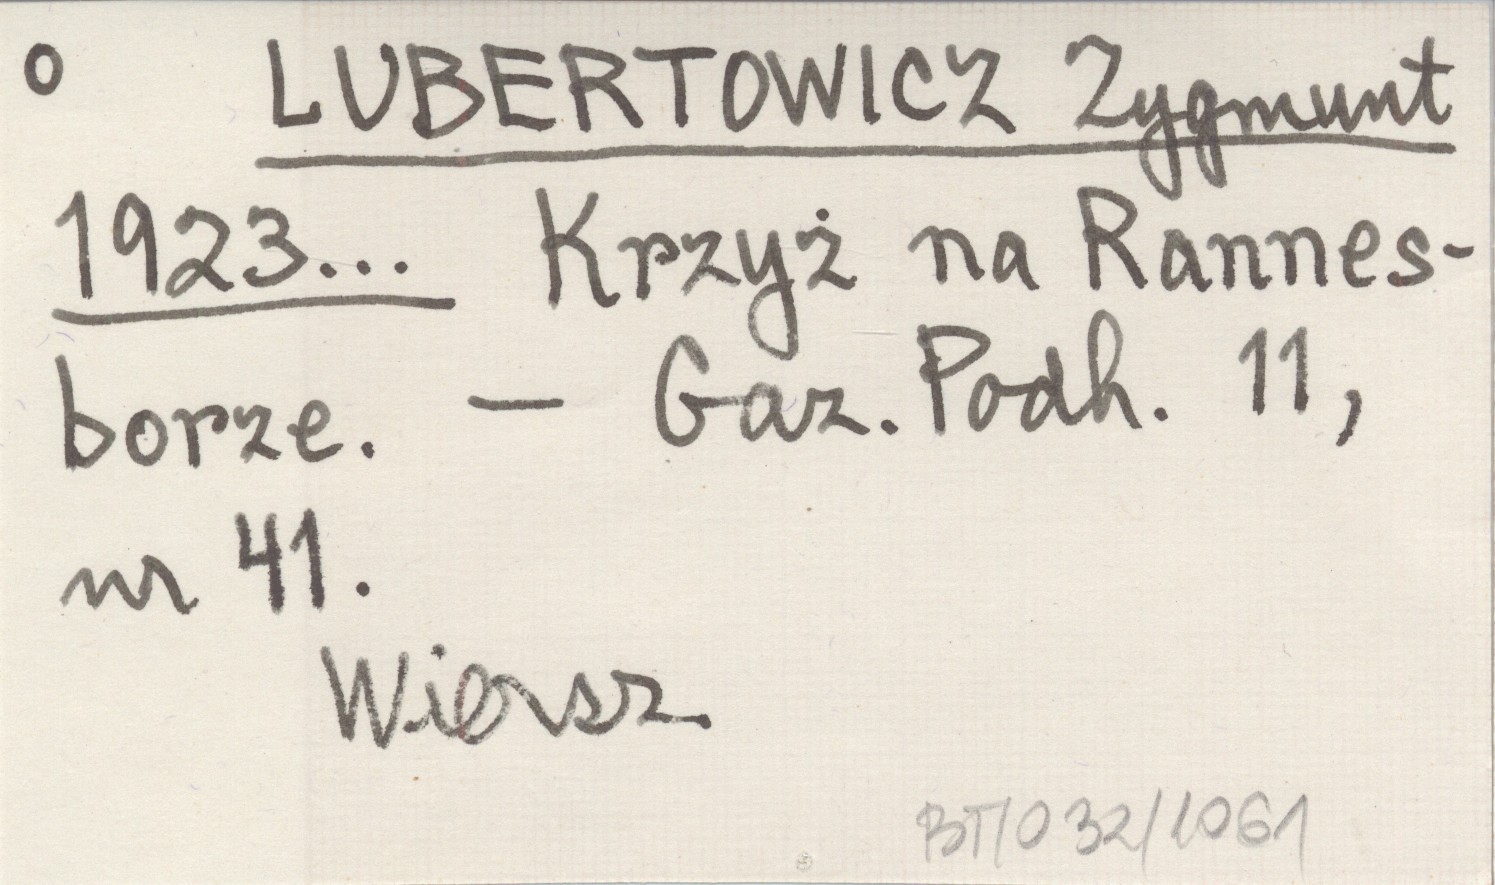 o LUBERTOWICZ Zygmunt
1923... Krzyż na Rannes-
borze. — Gaz. Podh. 11,
nr 41.
Wiersz.
BT/032/1061